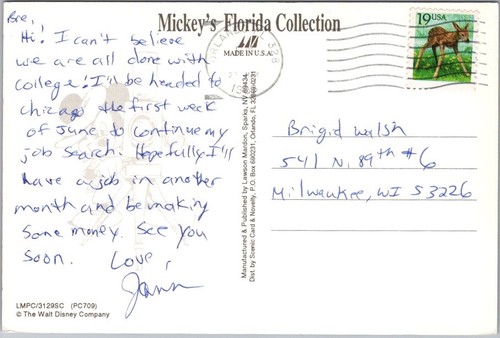 Mickey's Florida Collection
MADE IN U.S.A.
19 USA
Bre,
Hi! I can't believe
we are all done with
college! I'll be headed to
Chicago the first week
of June to continue my
job search. Hopefully I'll
have a job in another
month and be making
some money. See you
soon.
Love,
Manufactured & Published by Lawson Mardon, Sparks, NV 89434
Dist. by Scenic Card & Novelty, P.O. Box 690231, Orlando, FL 32869-0231
Brigid Walsh
541 N. 89th #6
Milwaukee, WI 53226
LMPC/3129SC (PC709)
© The Walt Disney Company